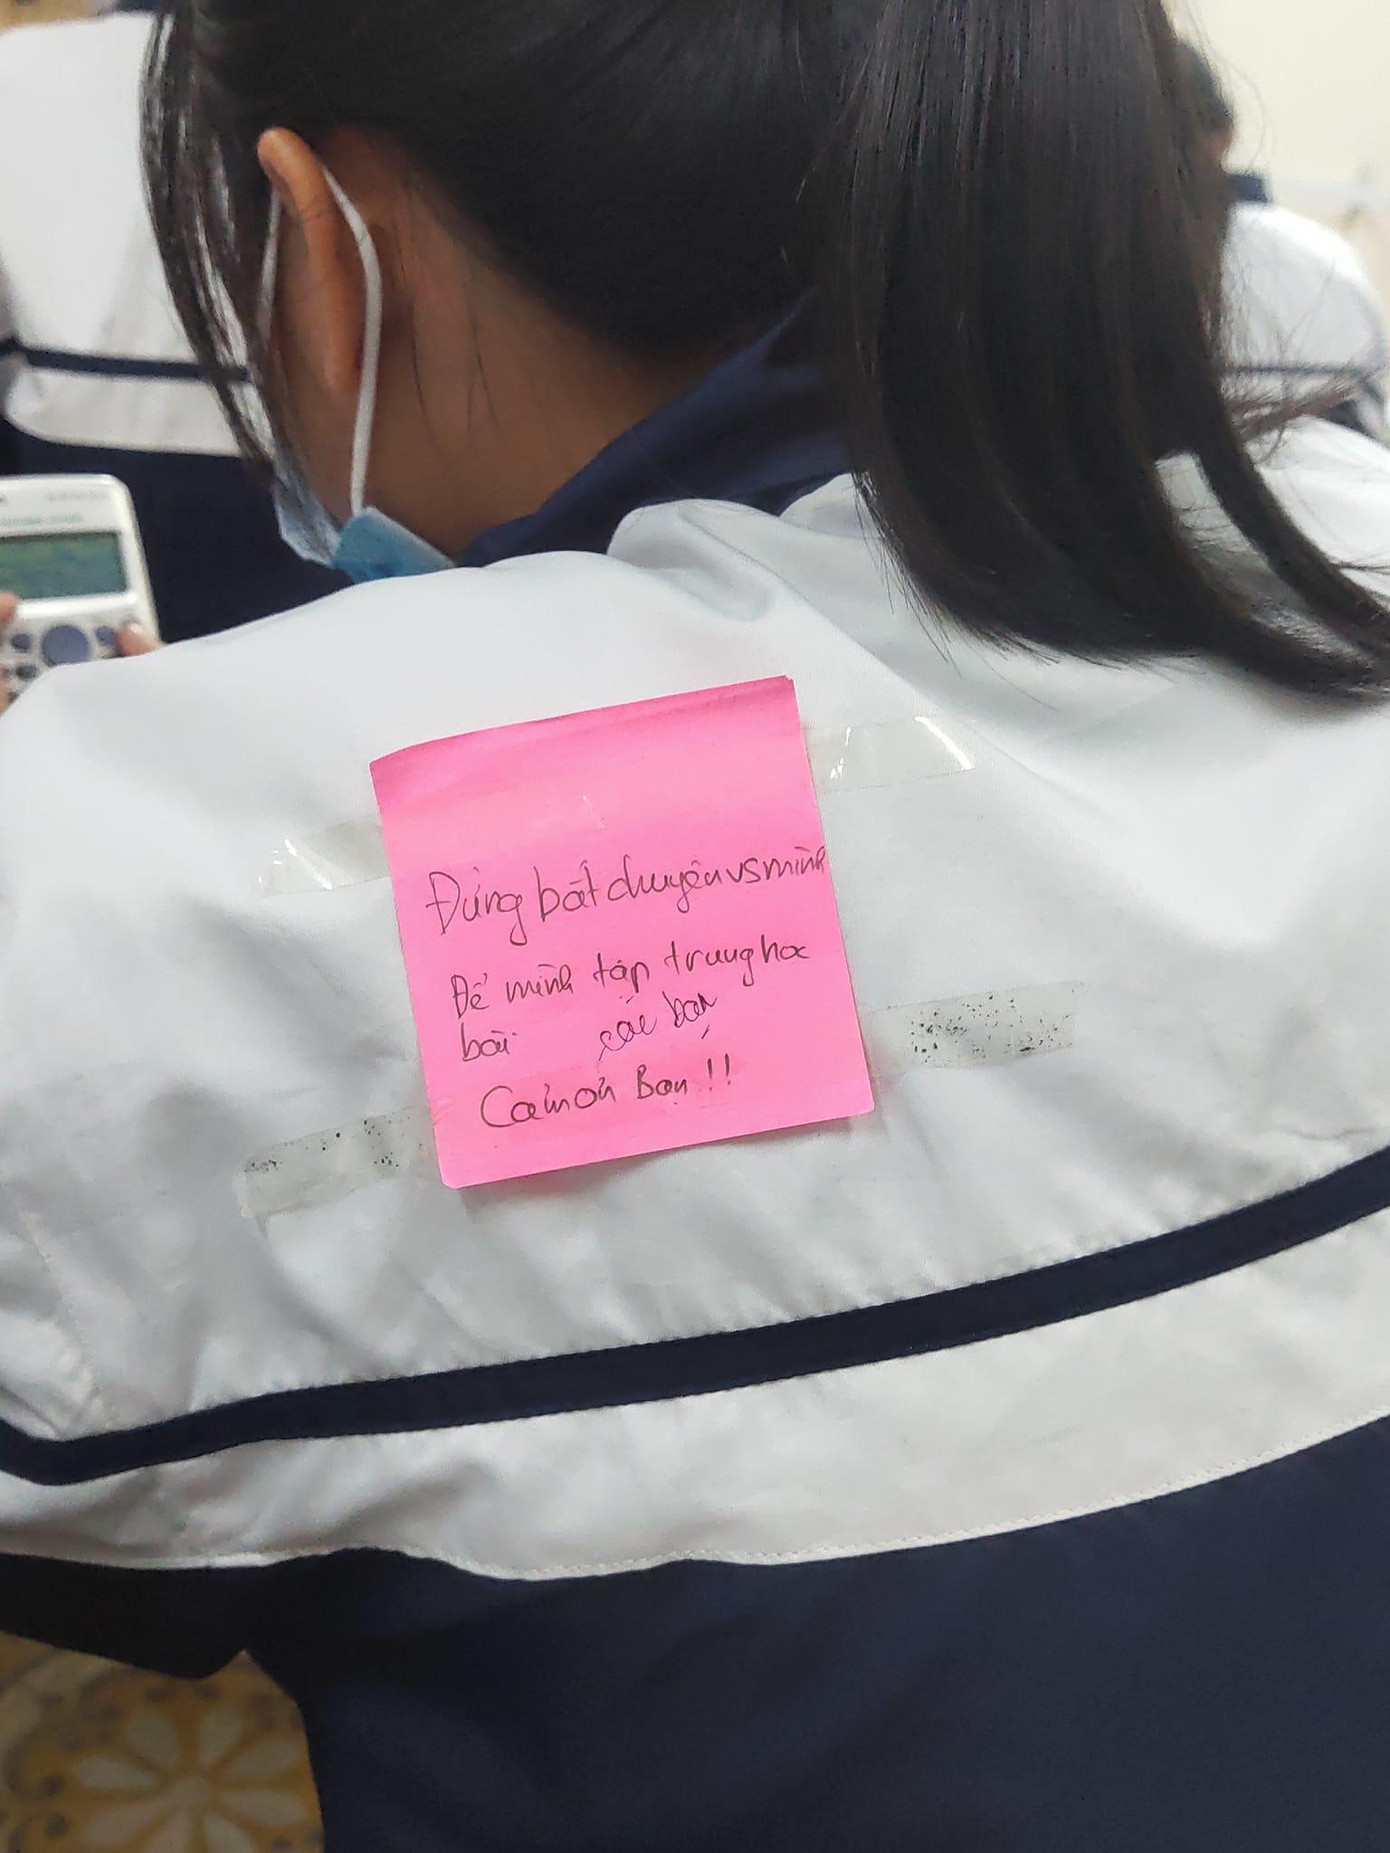 Đừng bắt chuyện vs mình
Để mình tập trung học
bài các bạn
Cảm ơn Bạn !!